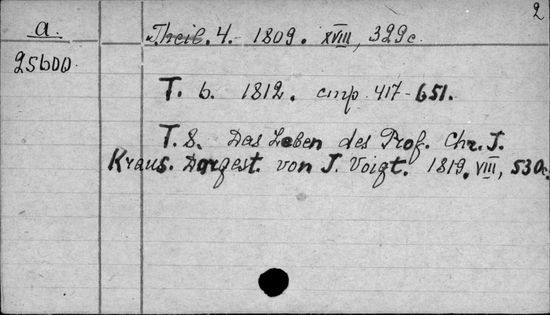 2
a.
25600
Theil. 4. 1809. XVIII, 329 с.
T. 6. 1812. стр. 417-651.
T. 8. Das Leben des Prof. Chr. J.
Kraus. Dargest. von J. Voigt. 1819. VIII, 530 с.